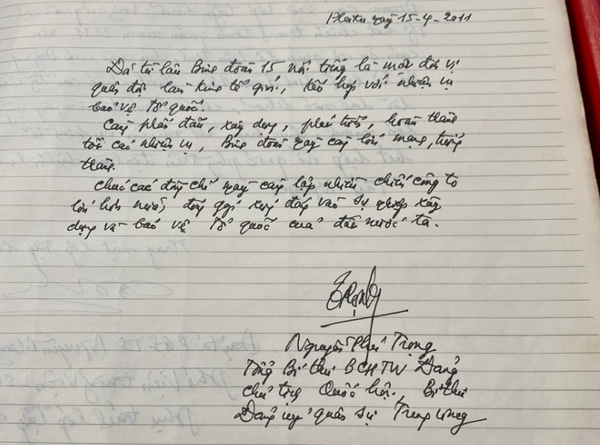 Pleiku ngày 15-4-2011
Đã từ lâu Binh đoàn 15 nổi tiếng là một đơn vị
quân đội làm kinh tế giỏi, kết hợp với nhiệm vụ
bảo vệ Tổ quốc.
Càng phấn đấu, xây dựng, phát triển, hoàn thành
tốt các nhiệm vụ, Binh đoàn ngày càng lớn mạnh, trưởng
thành.
Chúc các đồng chí ngày càng lập nhiều chiến công to
lớn hơn nữa, đóng góp xứng đáng vào sự nghiệp xây
dựng và bảo vệ Tổ quốc của đất nước ta.
Nguyễn Phú Trọng
Tổng Bí thư BCHTW Đảng
Chủ tịch Quốc hội, Bí thư
Đảng ủy quân sự Trung ương